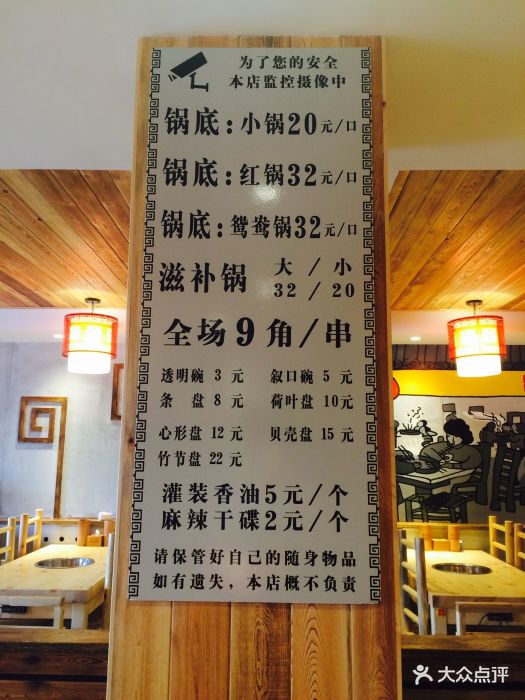 为了您的安全
本店监控摄像中
锅底:小锅20元/口
锅底:红锅32元/口
锅底:鸳鸯锅32元/口
滋补锅 大/小
32/20
全场9角/串
透明碗 3 元 叙口碗 5 元
条 盘 8 元 荷叶盘 10元
心形盘 12 元 贝壳盘 15 元
竹节盘 22 元
灌装香油5元/个
麻辣干碟2元/个
请保管好自己的随身物品
如有遗失,本店概不负责
大众点评